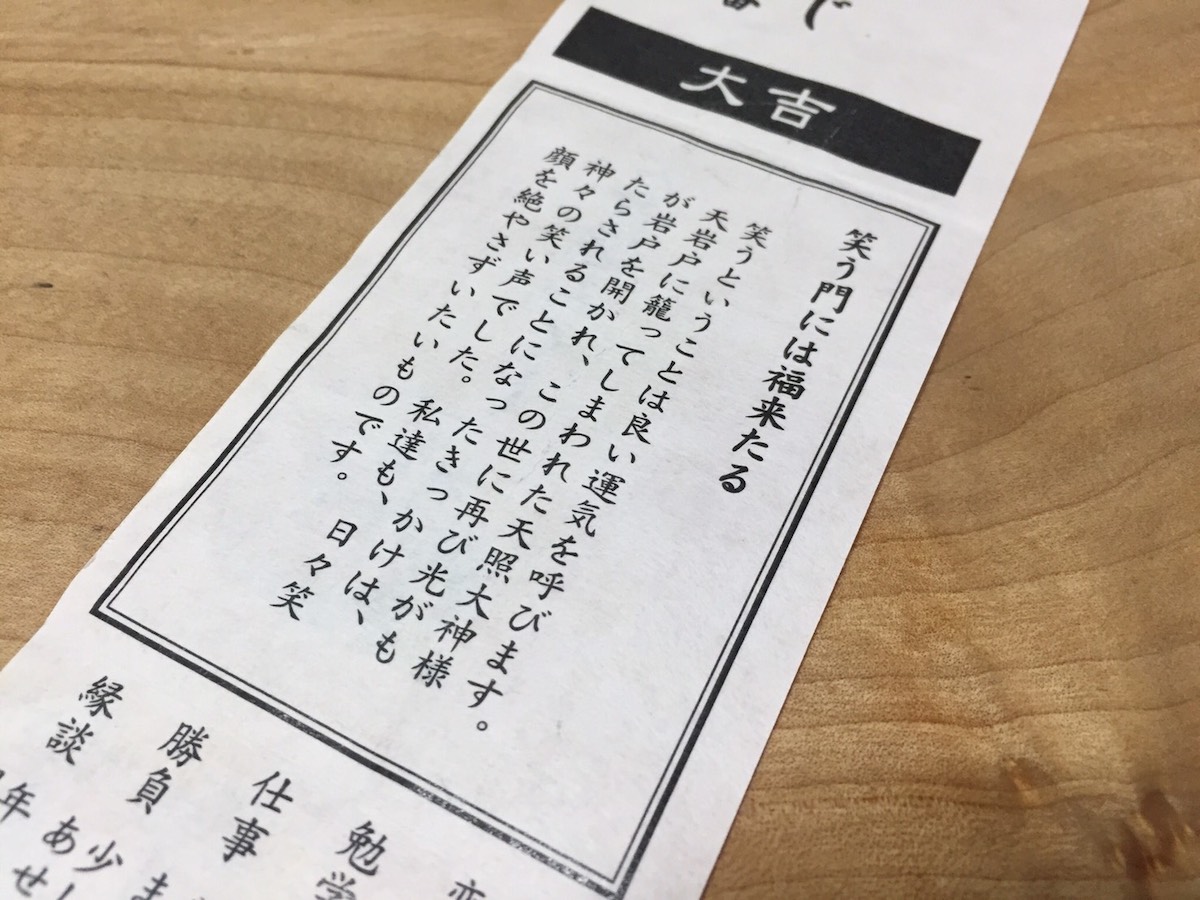 じ
大吉
笑う門には福来たる
笑うということは良い運気を呼びます。
天岩戸に籠ってしまわれた天照大神様
が岩戸を開かれ、この世に再び光がも
たらされることになったきっかけは、
神々の笑い声でした。私達も、日々笑
顔を絶やさずいたいものです。
勉学
仕事
勝負
縁談